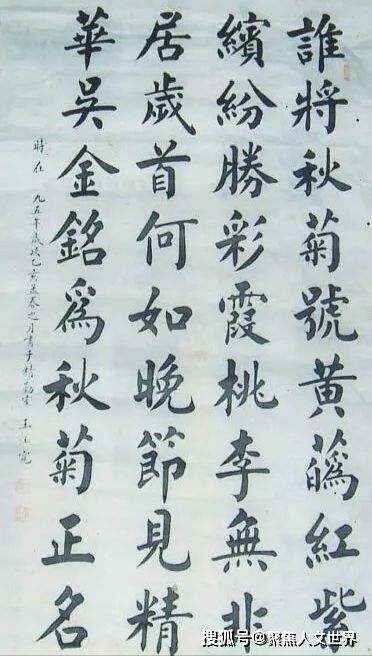 誰將秋菊號黃蘤紅紫
繽紛勝彩霞桃李無非
居歲首何如晚節見精
華吳金銘爲秋菊正名
時在 九五年歲次乙亥孟春之月書于精室 王
搜狐号@聚焦人文世界